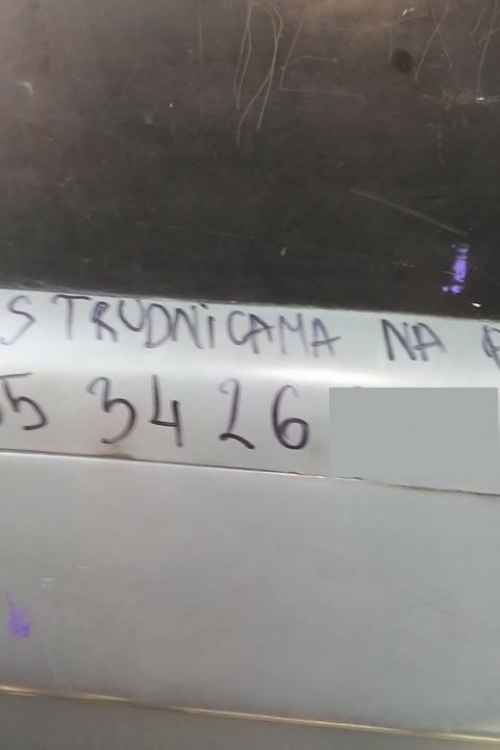 S TRUDNICAMA NA
5 34 26